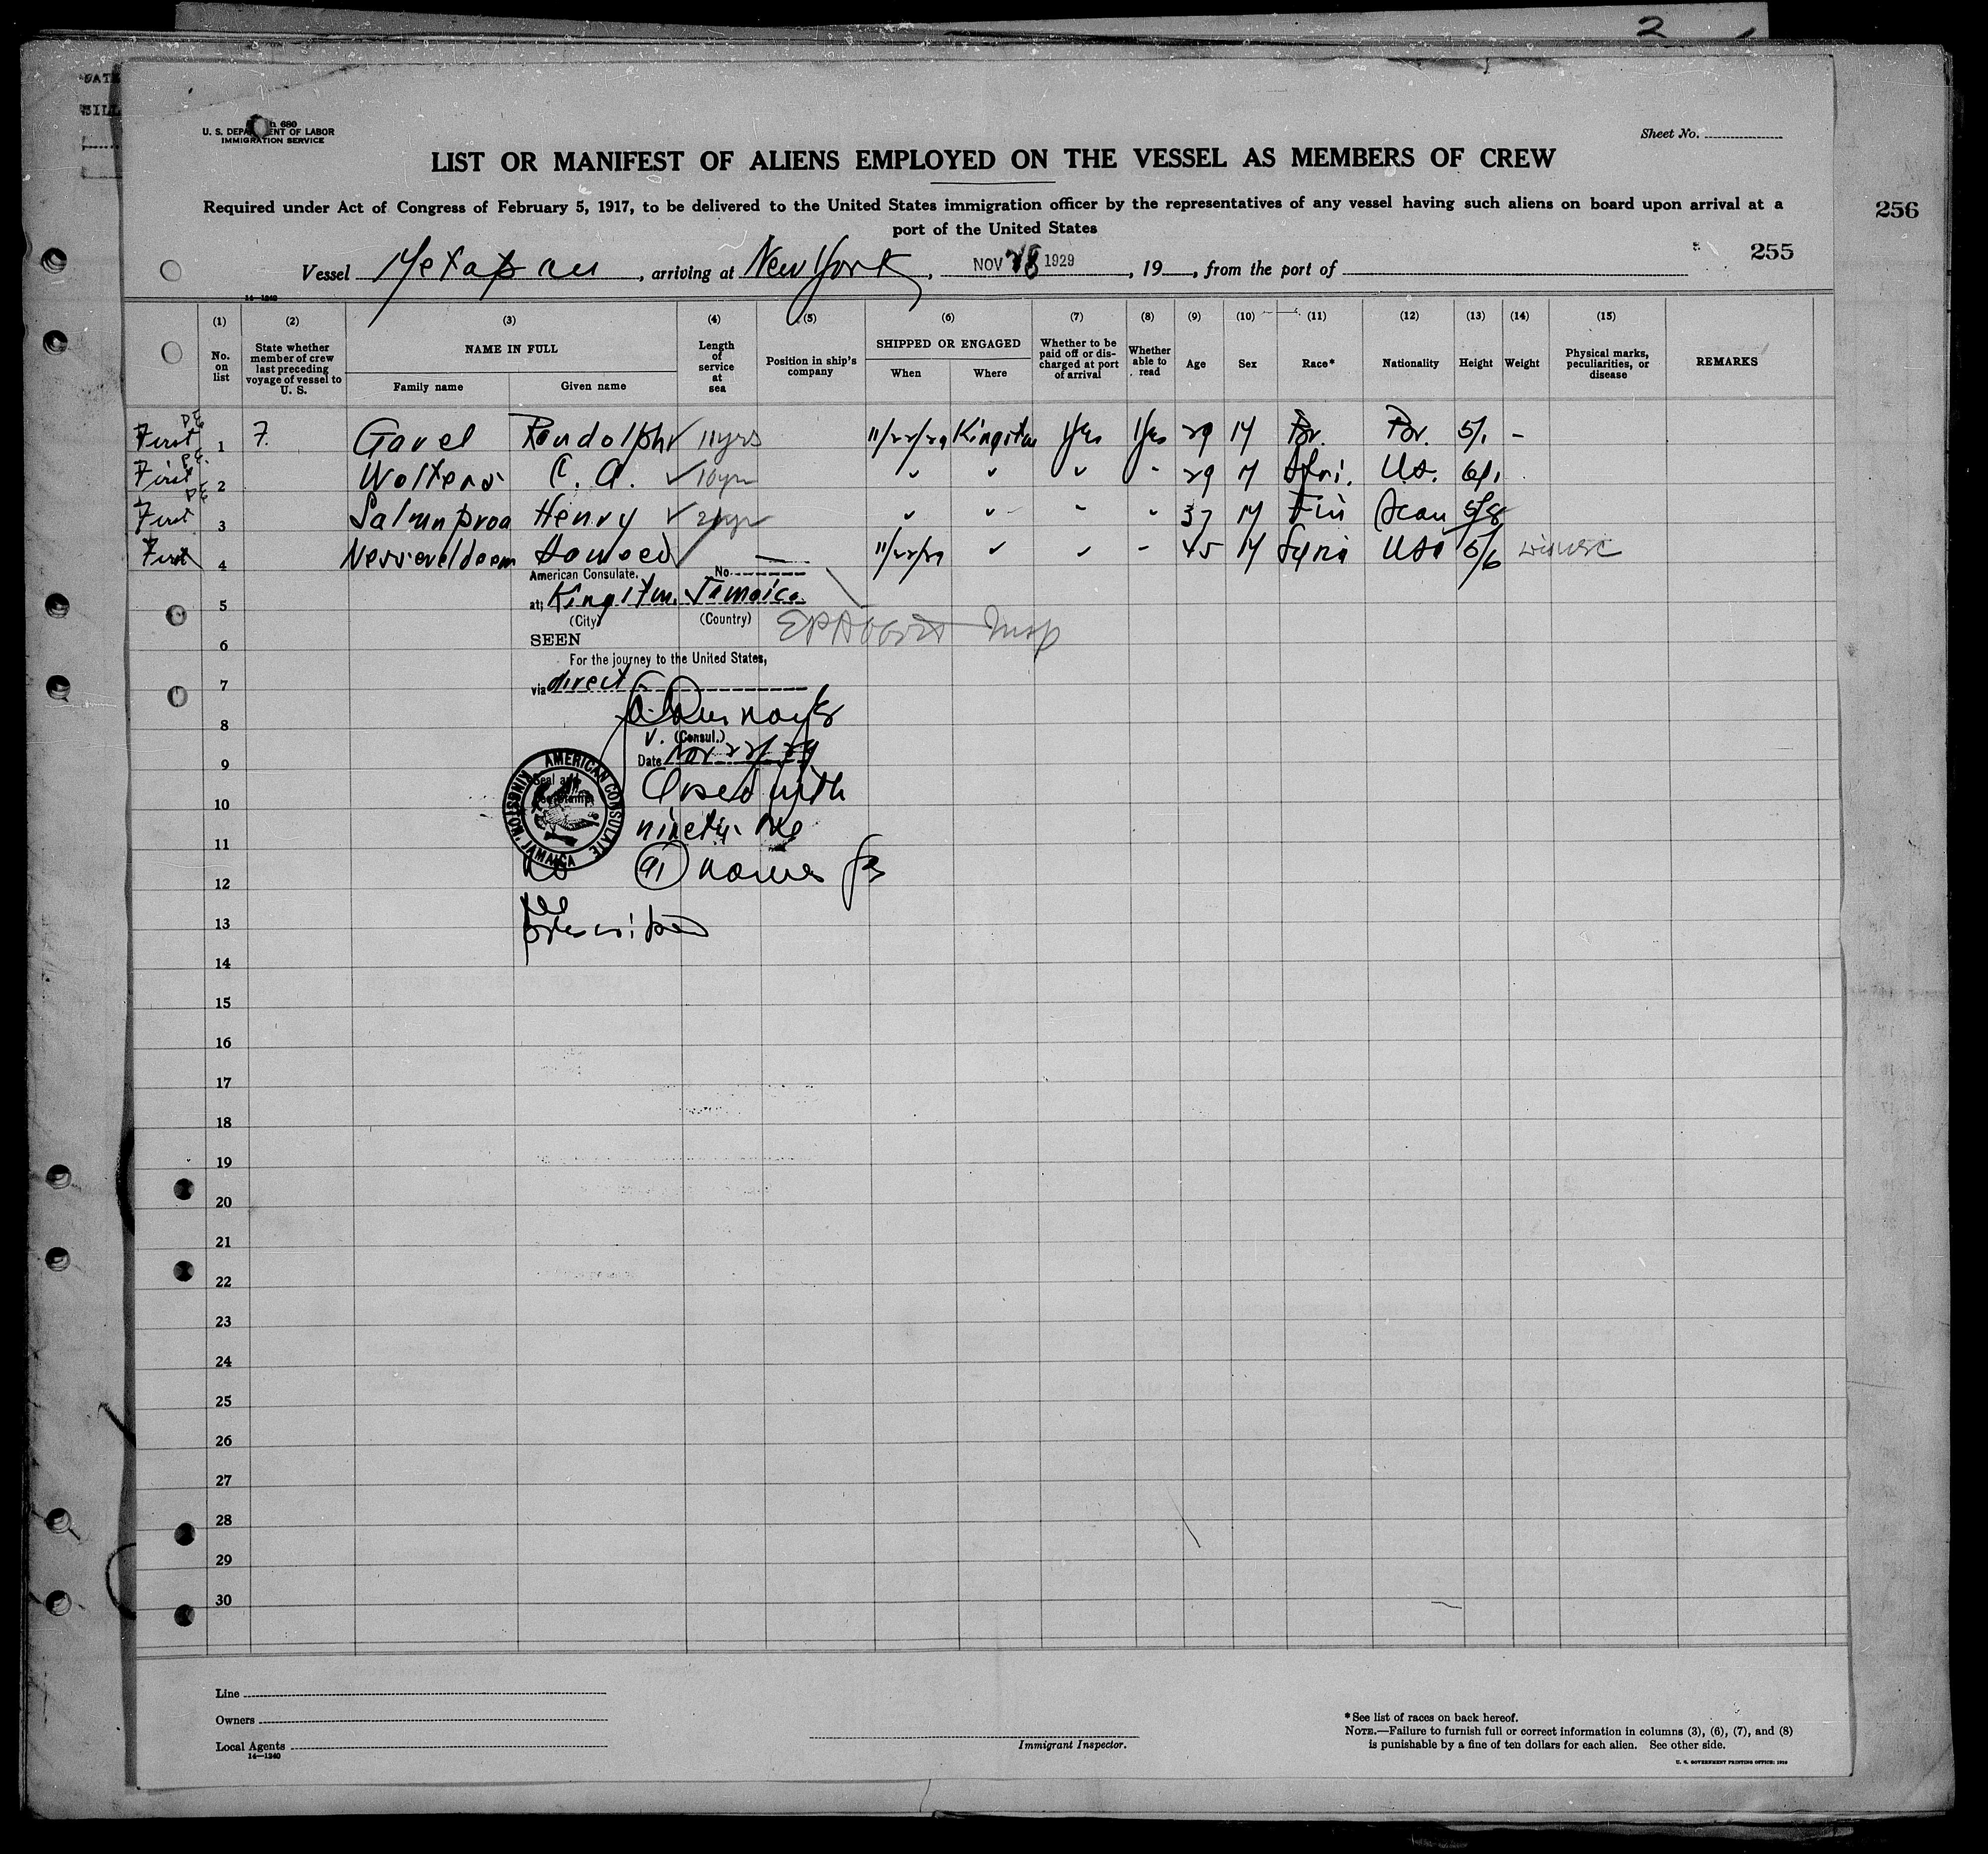 2
DATE
256
U. S. DEPARTMENT OF LABOR
IMMIGRATION SERVICE
Sheet No.
LIST OR MANIFEST OF ALIENS EMPLOYED ON THE VESSEL AS MEMBERS OF CREW
Required under Act of Congress of February 5, 1917, to be delivered to the United States immigration officer by the representatives of any vessel having such aliens on board upon arrival at a
port of the United States
255
Vessel Metapan, arriving at New York, NOV 28 1929, 19, from the port of
14—1240
(1) (2) (3) (4) (5) (6) (7) (8) (9) (10) (11) (12) (13) (14) (15)
No. on list
State whether member of crew last preceding voyage of vessel to U. S.
NAME IN FULL
Family name
Given name
Length of service at sea
Position in ship's company
SHIPPED OR ENGAGED
When
Where
Whether to be paid off or discharged at port of arrival
Whether able to read
Age
Sex
Race*
Nationality
Height
Weight
Physical marks, peculiarities, or disease
REMARKS
First 1 7. Gavel Randolph 11 yrs 11/22/29 Kingston Yes Yes 29 M Br. Br. 5/1 -
First 2 Wolters C. A. 10 yrs " " " " 29 M U.S. 6/1
First 3 Henry " " " " 37 M Fin Scan 5/8
First 4 — 11/22/29 " " " 45 M Syria USA 5/6
American Consulate. No.
at Kingston, Jamaica
(City) (Country)
5
SEEN
6
For the journey to the United States,
7
via direct
8
V. (Consul.)
9
Date Nov 22/29
AMERICAN CONSULATE
KINGSTON, JAMAICA
10
Closed with
11
ninety one
12
No (91) names
fee
13
prescribed
14
15
16
17
18
19
20
21
22
23
24
25
26
27
28
29
30
Line
Owners
Local Agents
14—1240
Immigrant Inspector.
* See list of races on back hereof.
NOTE.—Failure to furnish full or correct information in columns (3), (6), (7), and (8)
is punishable by a fine of ten dollars for each alien. See other side.